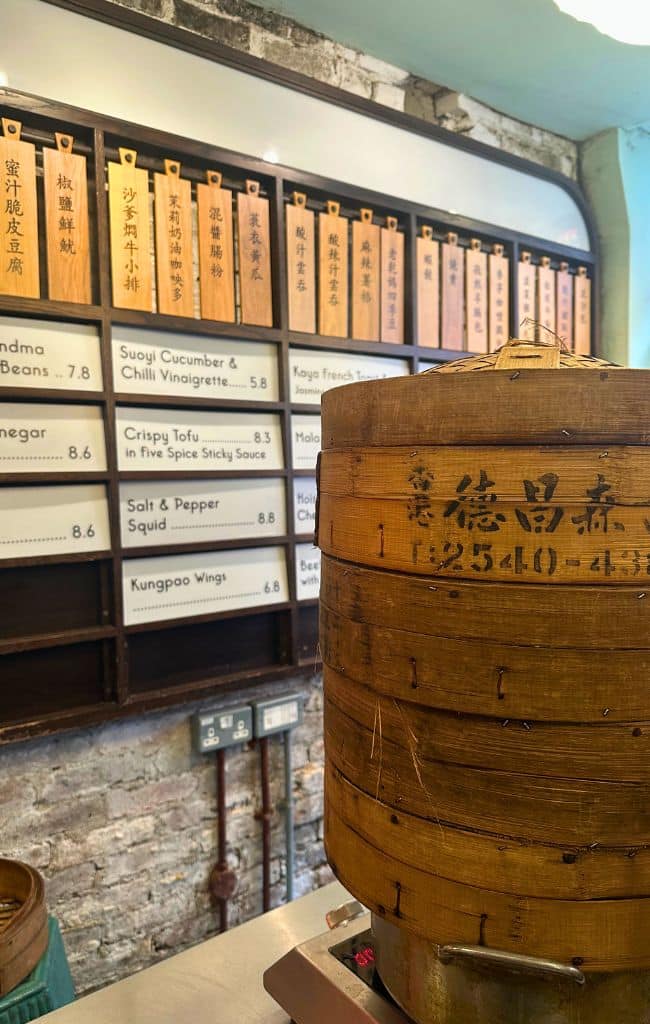 蜜汁脆皮豆腐
椒鹽鮮魷
沙爹燜牛小排
茉莉奶油咖央多
混醬腸粉
蓑衣黃瓜
酸汁雲吞
酸辣汁雲吞
麻辣墨格
老乾媽四季豆
ndma
Beans .. 7.8
Suoyi Cucumber &
Chilli Vinaigrette...... 5.8
Kaya French
Jasmin
negar
8.6
Crispy Tofu .................. 8.3
in Five Spice Sticky Sauce
Mala
8.6
Salt & Pepper
Squid ........................... 8.8
Hois
Che
Kungpao Wings
6.8
Beef
with
香港德昌森
T:2540-43